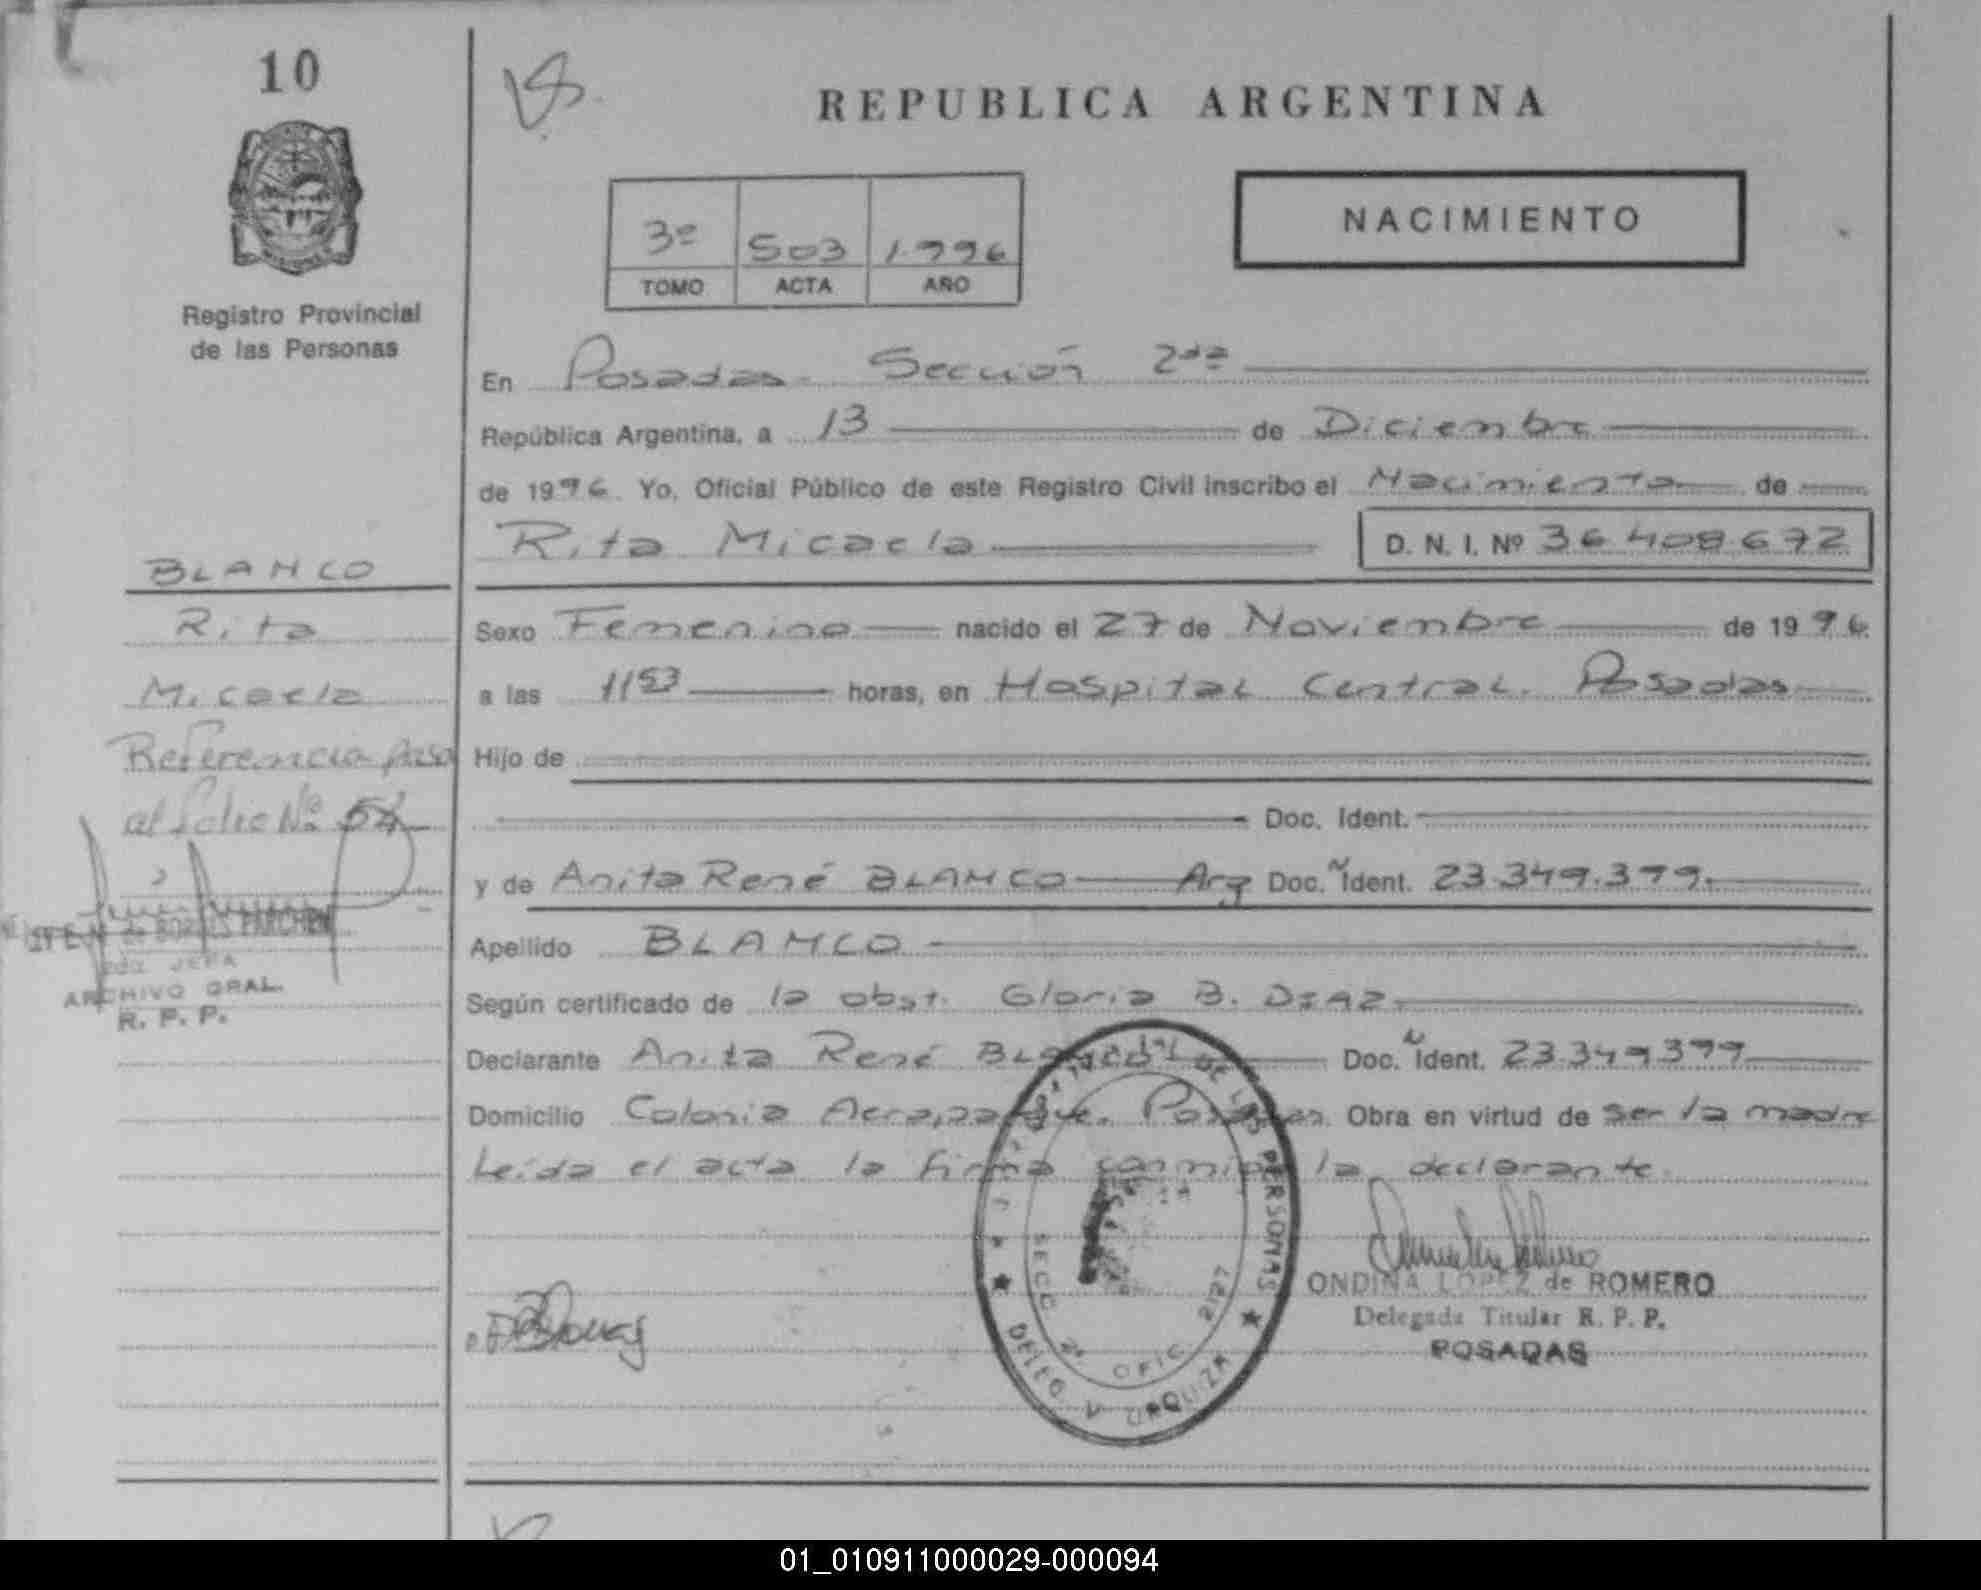 10
REPUBLICA ARGENTINA
3º 503 1.996
TOMO ACTA AÑO
NACIMIENTO
Registro Provincial
de las Personas
En Posadas - Sección 2da
República Argentina, a 13 de Diciembre
de 1996. Yo, Oficial Público de este Registro Civil inscribo el Nacimiento de
Rita Micaela D. N. I. Nº 36.408.672
BLANCO
Rita
Micaela
Referencia pasa
al folio Nº 54
Sexo Femenino nacido el 27 de Noviembre de 1996
a las 11 53 horas, en Hospital Central. Posadas
Hijo de
Doc. Ident.
y de Anita René BLANCO Arg Doc. Ident. 23.349.379.
Apellido BLANCO
Según certificado de la obst. Gloria B. DIAZ
Declarante Anita René BLANCO Doc. Ident. 23.349.379
Domicilio Colonia Aeroparque. Posadas. Obra en virtud de ser la madre
Leída el acta la firma conmigo la declarante.
JEFA
ARCHIVO GRAL.
R. P. P.
DE LAS PERSONAS
SECC 2ª OFIC 2127
DELEG URQUIZA
ONDINA LOPEZ de ROMERO
Delegada Titular R. P. P.
POSADAS
01_010911000029-000094